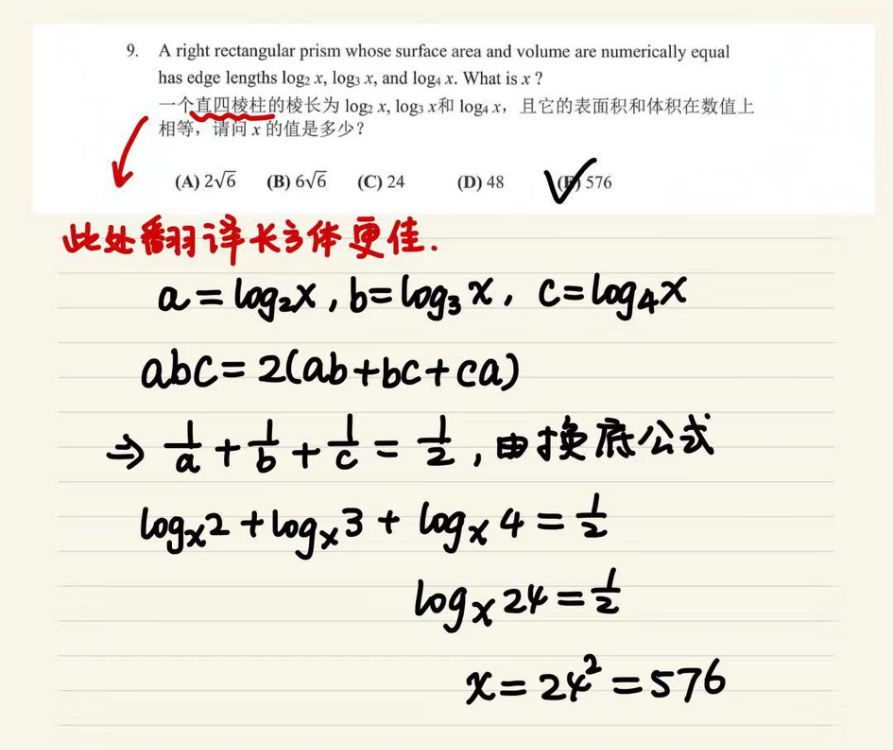 9. A right rectangular prism whose surface area and volume are numerically equal
has edge lengths log₂ x, log₃ x, and log₄ x. What is x ?
一个直四棱柱的棱长为 log₂ x, log₃ x和 log₄ x，且它的表面积和体积在数值上
相等，请问 x 的值是多少？
(A) 2√6 (B) 6√6 (C) 24 (D) 48 (E) 576
此处翻译长方体更佳.
a=log₂x, b=log₃x, c=log₄x
abc=2(ab+bc+ca)
⇒ 1/a + 1/b + 1/c = 1/2, 由换底公式
logₓ2+logₓ3+logₓ4=1/2
logₓ24=1/2
x=24²=576